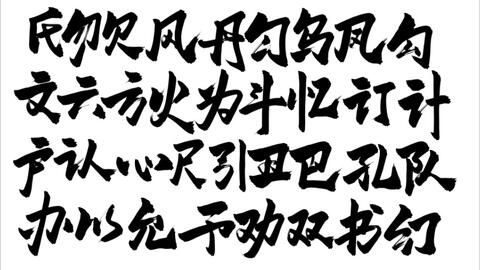 氏勿欠风丹匀乌凤勾
文六方火为斗忆订计
户认心尺引丑巴孔队
办以允予劝双书幻